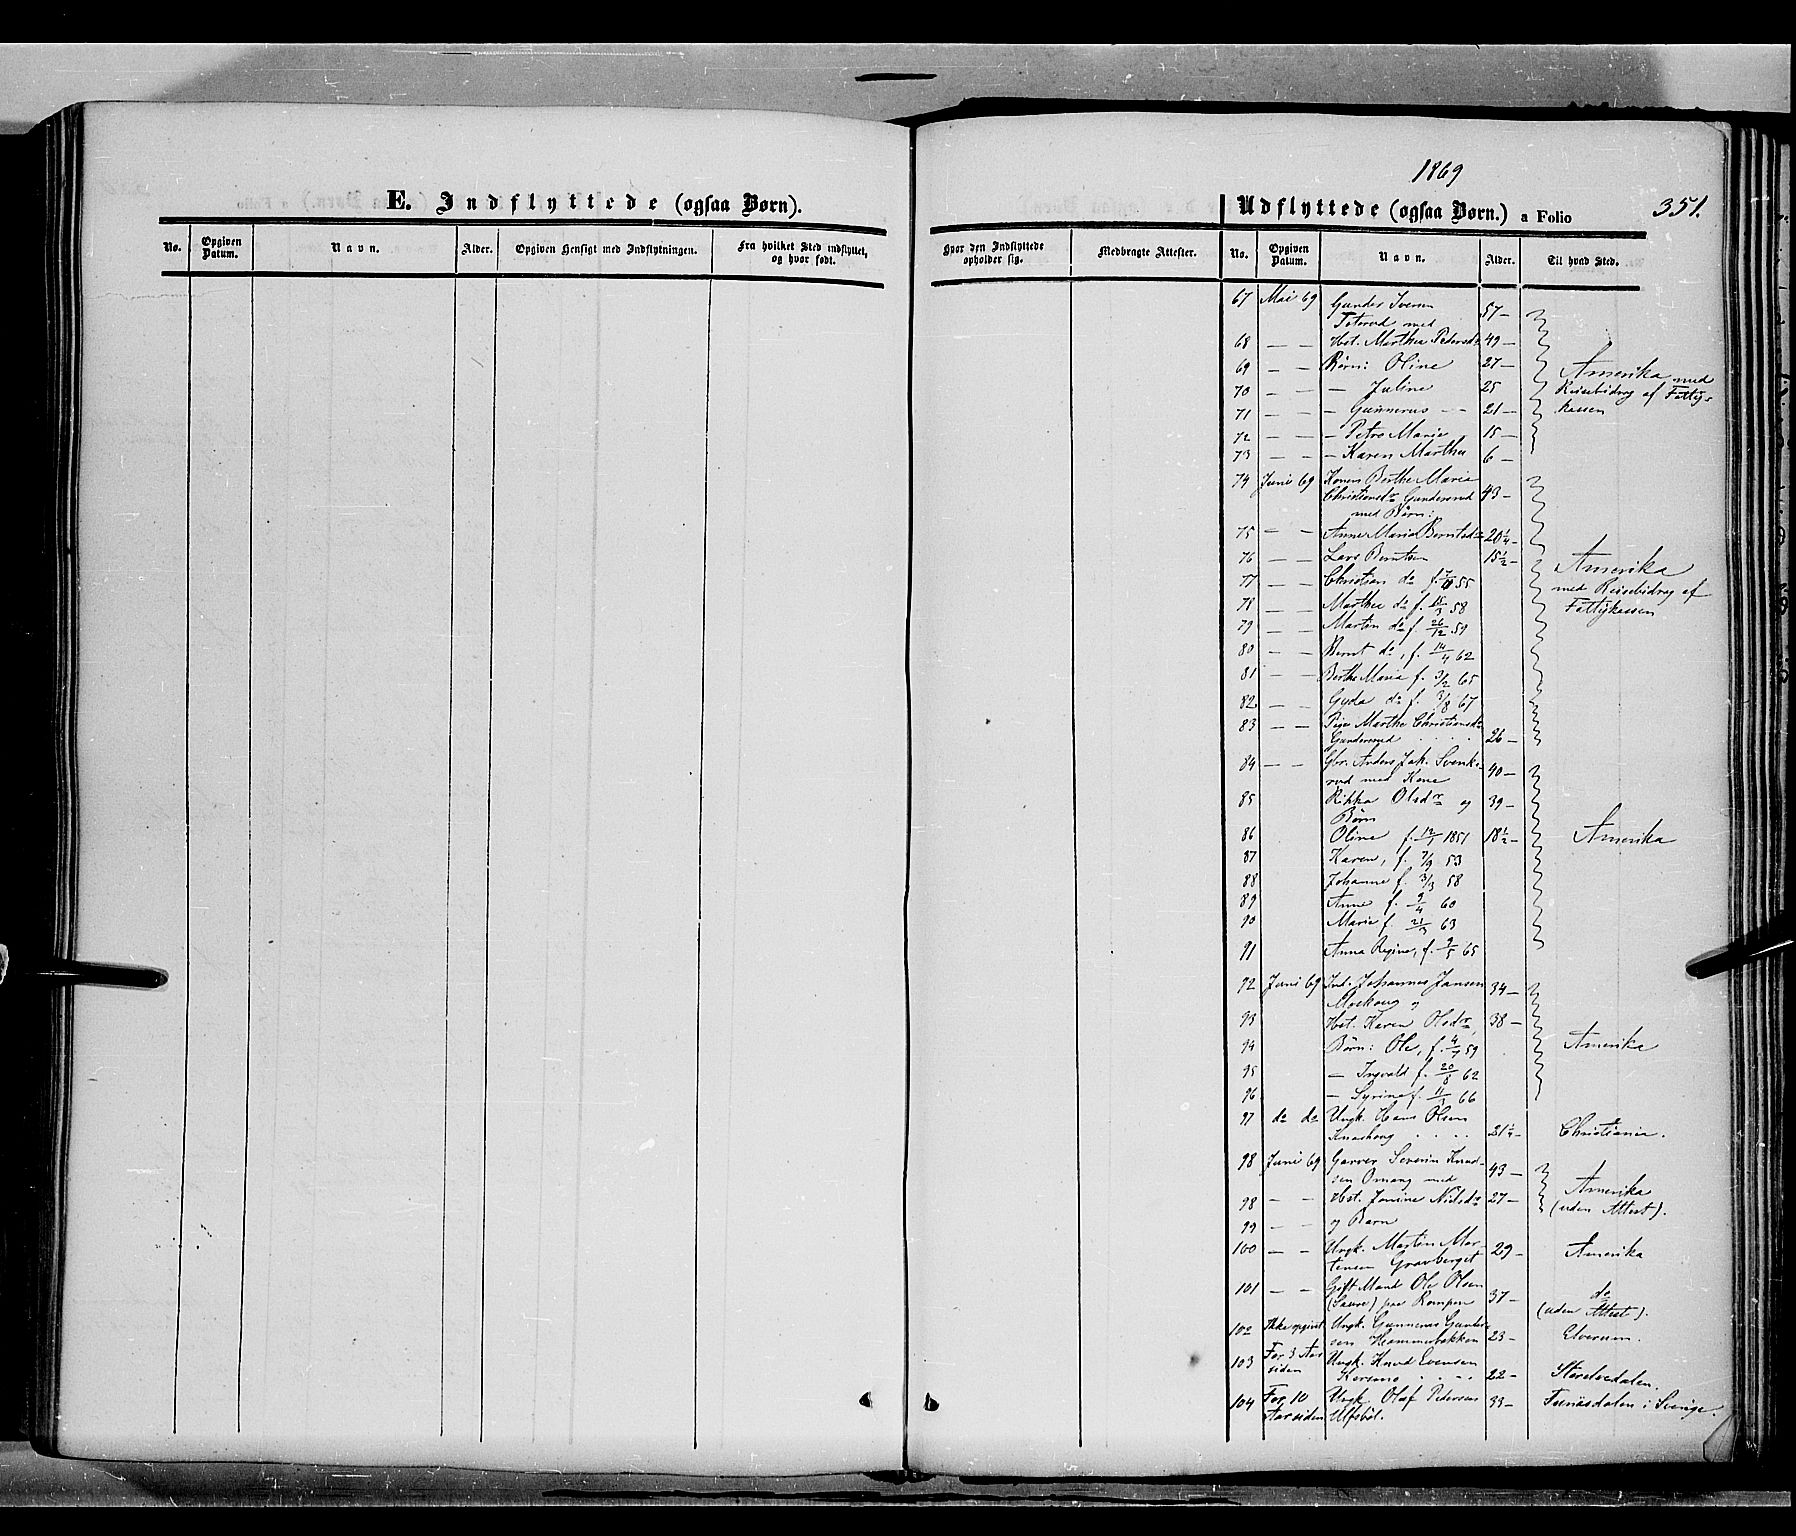 1869
351.
E. Indflyttede (ogsaa Børn).
No.
Opgiven Datum.
Navn.
Alder.
Opgiven Hensigt med Indflytningen.
Fra hvilket Sted indflyttet, og hvor født.
Hvor den Indflyttede opholder sig.
Medbragte Attester.
Udflyttede (ogsaa Børn.) a Folio
No.
Opgiven Datum.
Navn.
Alder.
Til hvad Sted.
67 Mai 69 Gunder Iversen 57 –
med
68 – – Hst. Marthea Pedersdr 49 –
69 – – Børn: Oline 27 – Amerika med
70 – – – Juline 25 Reisebidrag af Fattig-
71 – – – Gunnerus – – 21 – kassen
72 – – – Petra Marie 15 –
73 – – – Karen Marthea 6 –
74 Juni 69 Konen Berthe Maria
Christiansdr Gundersrud 43 –
med Børn:
75 – – Anne Maria Berntsdr 20 1/4 –
76 – – Lars Berntsen 15 1/2 – Amerika
77 – – Christian do f. 55 med Reisebidrag af
78 – – Marthea do f. 15/3 58 Fattigkassen
79 – – Martin do f. 26/12 59
80 – – Bernt do, f. 14/4 62
81 – – Berthe Maria f. 3/2 65
82 – – Gyda do f. 3/8 67
83 – – Pige Marthe Christiansdr
Gundersrud . . . . 26 –
84 – – Gbr. Anders Jak. Svenke-
rud med Kone 40 –
85 Rikka Olsdr og 39 –
Børn
86 Oline f. 12/1 1851 18 1/2 – Amerika
87 Karen, f. 7/9 53
88 Johanne f. 3/3 58
89 Anne f. 9/4 60
90 Marie f. 21/3 63
91 Anna Regine, f. 9/5 65
92 Juni 69 Ind. Johannes Jansen 34 –
og
93 Hst. Karen Olsdr, 38 –
94 Børn: Ole, f. 4/7 59 Amerika
95 – Ingvald f. 20/8 62
96 – Syrine f. 66
97 do do Ungk. Hans Olsen
. . . . 21 1/4 – Christiania.
98 Juni 69 Garver Severin Knud-
sen Omang med 43 – Amerika
98 – – Hst. Jonine Nielsdr 27 – (uden Attest).
99 – – og Barn
100 – – Ungk. Martin Mar- 29 – Amerika
tensen Gravberget
101 – – Gift Mand Ole Olsen do
paa Rompen 37 – (uden Attest).
102 Ikke opgivet Ungk. Gunnerus Gunder-
sen Hammerbekken 23 – Elverum.
103 For 3 Aar Ungk. Knud Evensen
siden . . . . 22 – Storelvedalen.
104 For 10 Ungk. Oluf Pedersen 33 – Funäsdalen i Sverige.
Aar siden Ulfsböl.